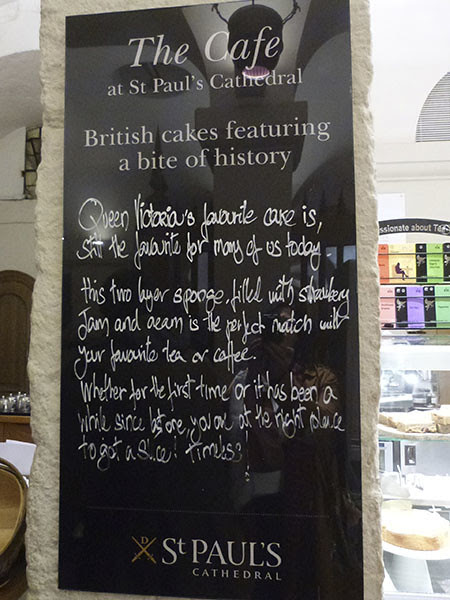 The Cafe
at St Paul's Cathedral
British cakes featuring
a bite of history
Queen Victoria's favourite cake is,
still the favourite for many of us today
this two layer sponge, filled with strawberry
Jam and cream is the perfect match with
your favourite tea or coffee.
Whether for the first time or it has been a
while since before, you are at the right place
to get a slice! timeless!
D
ST PAUL'S
CATHEDRAL
ssionate about Te